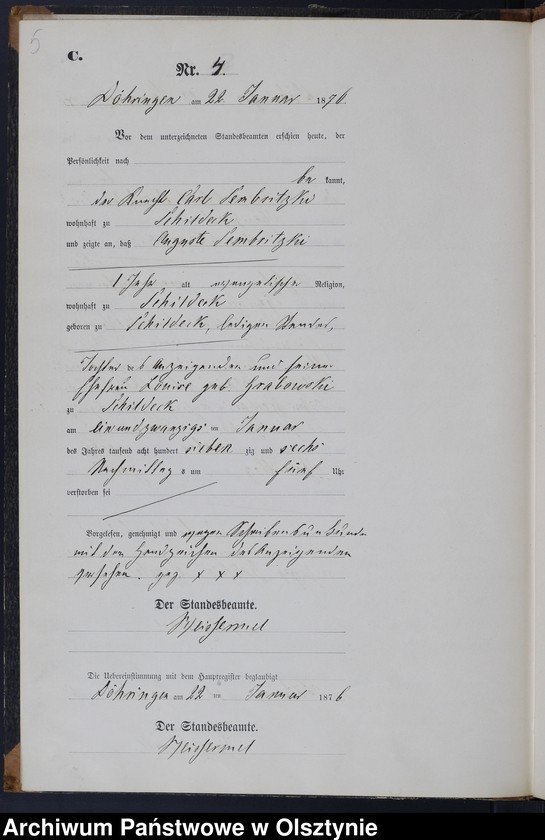 5
C.
Nr. 4.
Döhringen am 22 Januar 1876.
Vor dem unterzeichneten Standesbeamten erschien heute, der
Persönlichkeit nach
be kannt,
der Knecht Carl Sembritzki
wohnhaft zu Schildeck
und zeigte an, daß Auguste Sembritzki
1 Jahr alt evangelischer Religion,
wohnhaft zu Schildeck
geboren zu Schildeck, ledigen Standes,
Tochter des Anzeigenden und seiner
Ehefrau Louise geb Grabowski
zu Schildeck
am einundzwanzigs ten Januar
des Jahres tausend acht hundert sieben zig und sechs
Nachmittag s um fünf Uhr
verstorben sei
Vorgelesen, genehmigt und wegen Schreibensunkunde
mit den Handzeichen des Anzeigenden
versehen. gez. x x x
Der Standesbeamte.
Weissermel
Die Uebereinstimmung mit dem Hauptregister beglaubigt
Döhringen am 22 ten Januar 1876
Der Standesbeamte.
Weissermel
Archiwum Państwowe w Olsztynie